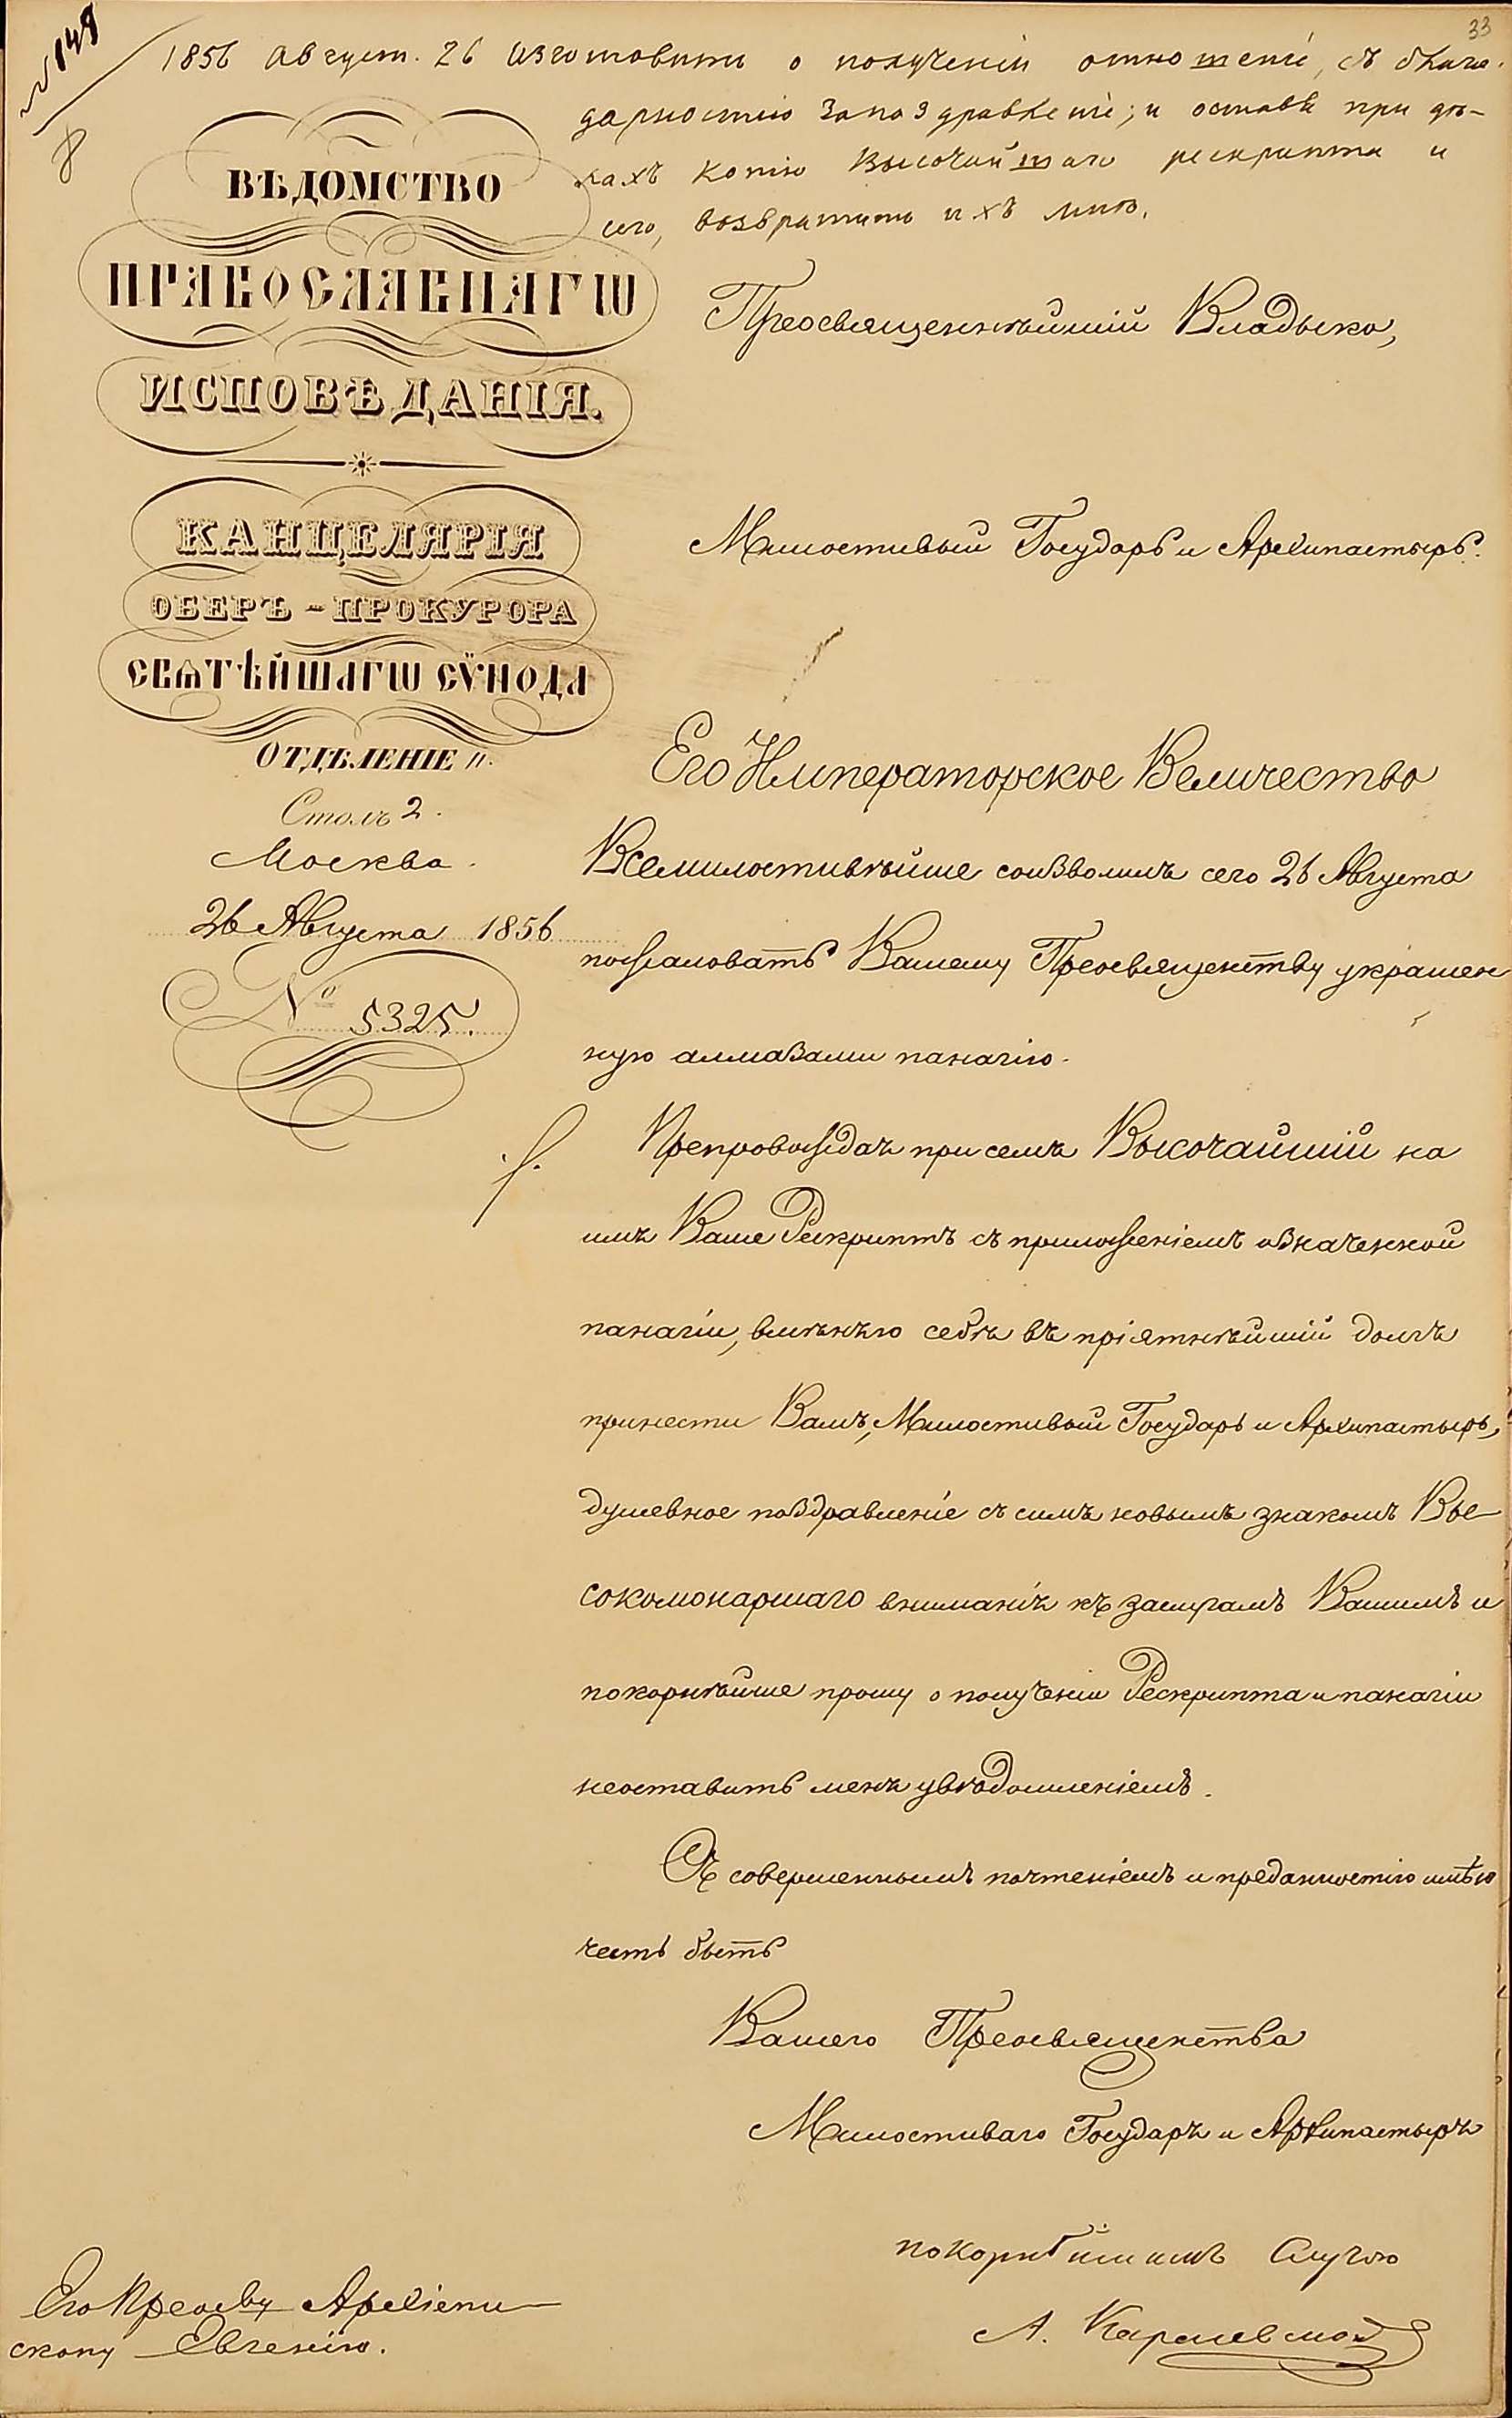 33
№ 148
8
1856 Август. 26 Изготовить о полученіи отношеніе, съ благо-
дарностію за поздравленіе; и оставя при дѣ-
лахъ копію Высочайшаго рескрипта и
сего, возвратить ихъ мнѣ.
ВѢДОМСТВО
ПРАВОСЛАВНАГѠ
ИСПОВѢДАНІЯ.
КАНЦЕЛЯРІЯ
ОБЕРЪ-ПРОКУРОРА
СВѦТѢЙШАГѠ СѶНОДА
ОТДѢЛЕНІЕ II.
Столъ 2.
Москва.
26 Августа 1856
№ 5325.
Преосвященнѣйшій Владыко,
Милостивый Государь и Архипастырь.
Его Императорское Величество
Всемилостивѣйше соизволилъ сего 26 Августа
пожаловать Вашему Преосвященству украшен
ную алмазами панагію.
Препровождая при семъ Высочайшій на
имя Ваше Рескриптъ съ приложеніемъ означенной
панагіи, вмѣняю себѣ въ пріятнѣйшій долгъ
принести Вамъ, Милостивый Государь и Архипастырь,
душевное поздравленіе съ симъ новымъ знакомъ Вы-
сокомонаршаго вниманія къ заслугамъ Вашимъ и
покорнѣйше прошу о полученіи Рескрипта и панагіи
неоставить меня увѣдомленіемъ.
Съ совершеннымъ почтеніемъ и преданностію имѣю
честь быть
Вашего Преосвященства
Милостиваго Государя и Архипастыря
покорнѣйшимъ слугою
А. Карасевской
Его Преосву Архіепи-
скопу Евгенію.